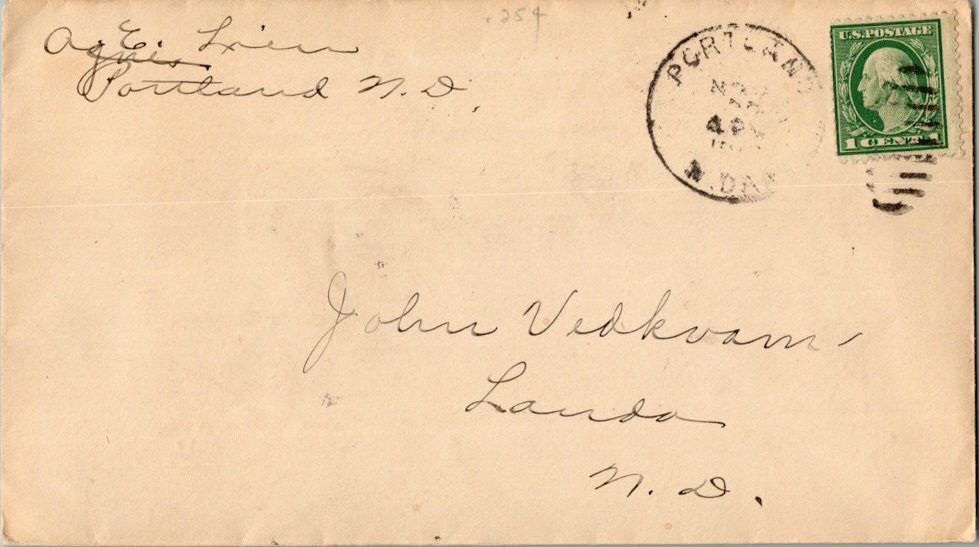 .25¢
Ag E. Lien
nes
Portland N.D.
PORTLAND
NOV
4 PM
N. DAK
U.S. POSTAGE
1 CENT 1
John Vedkvam
Landa
N. D.